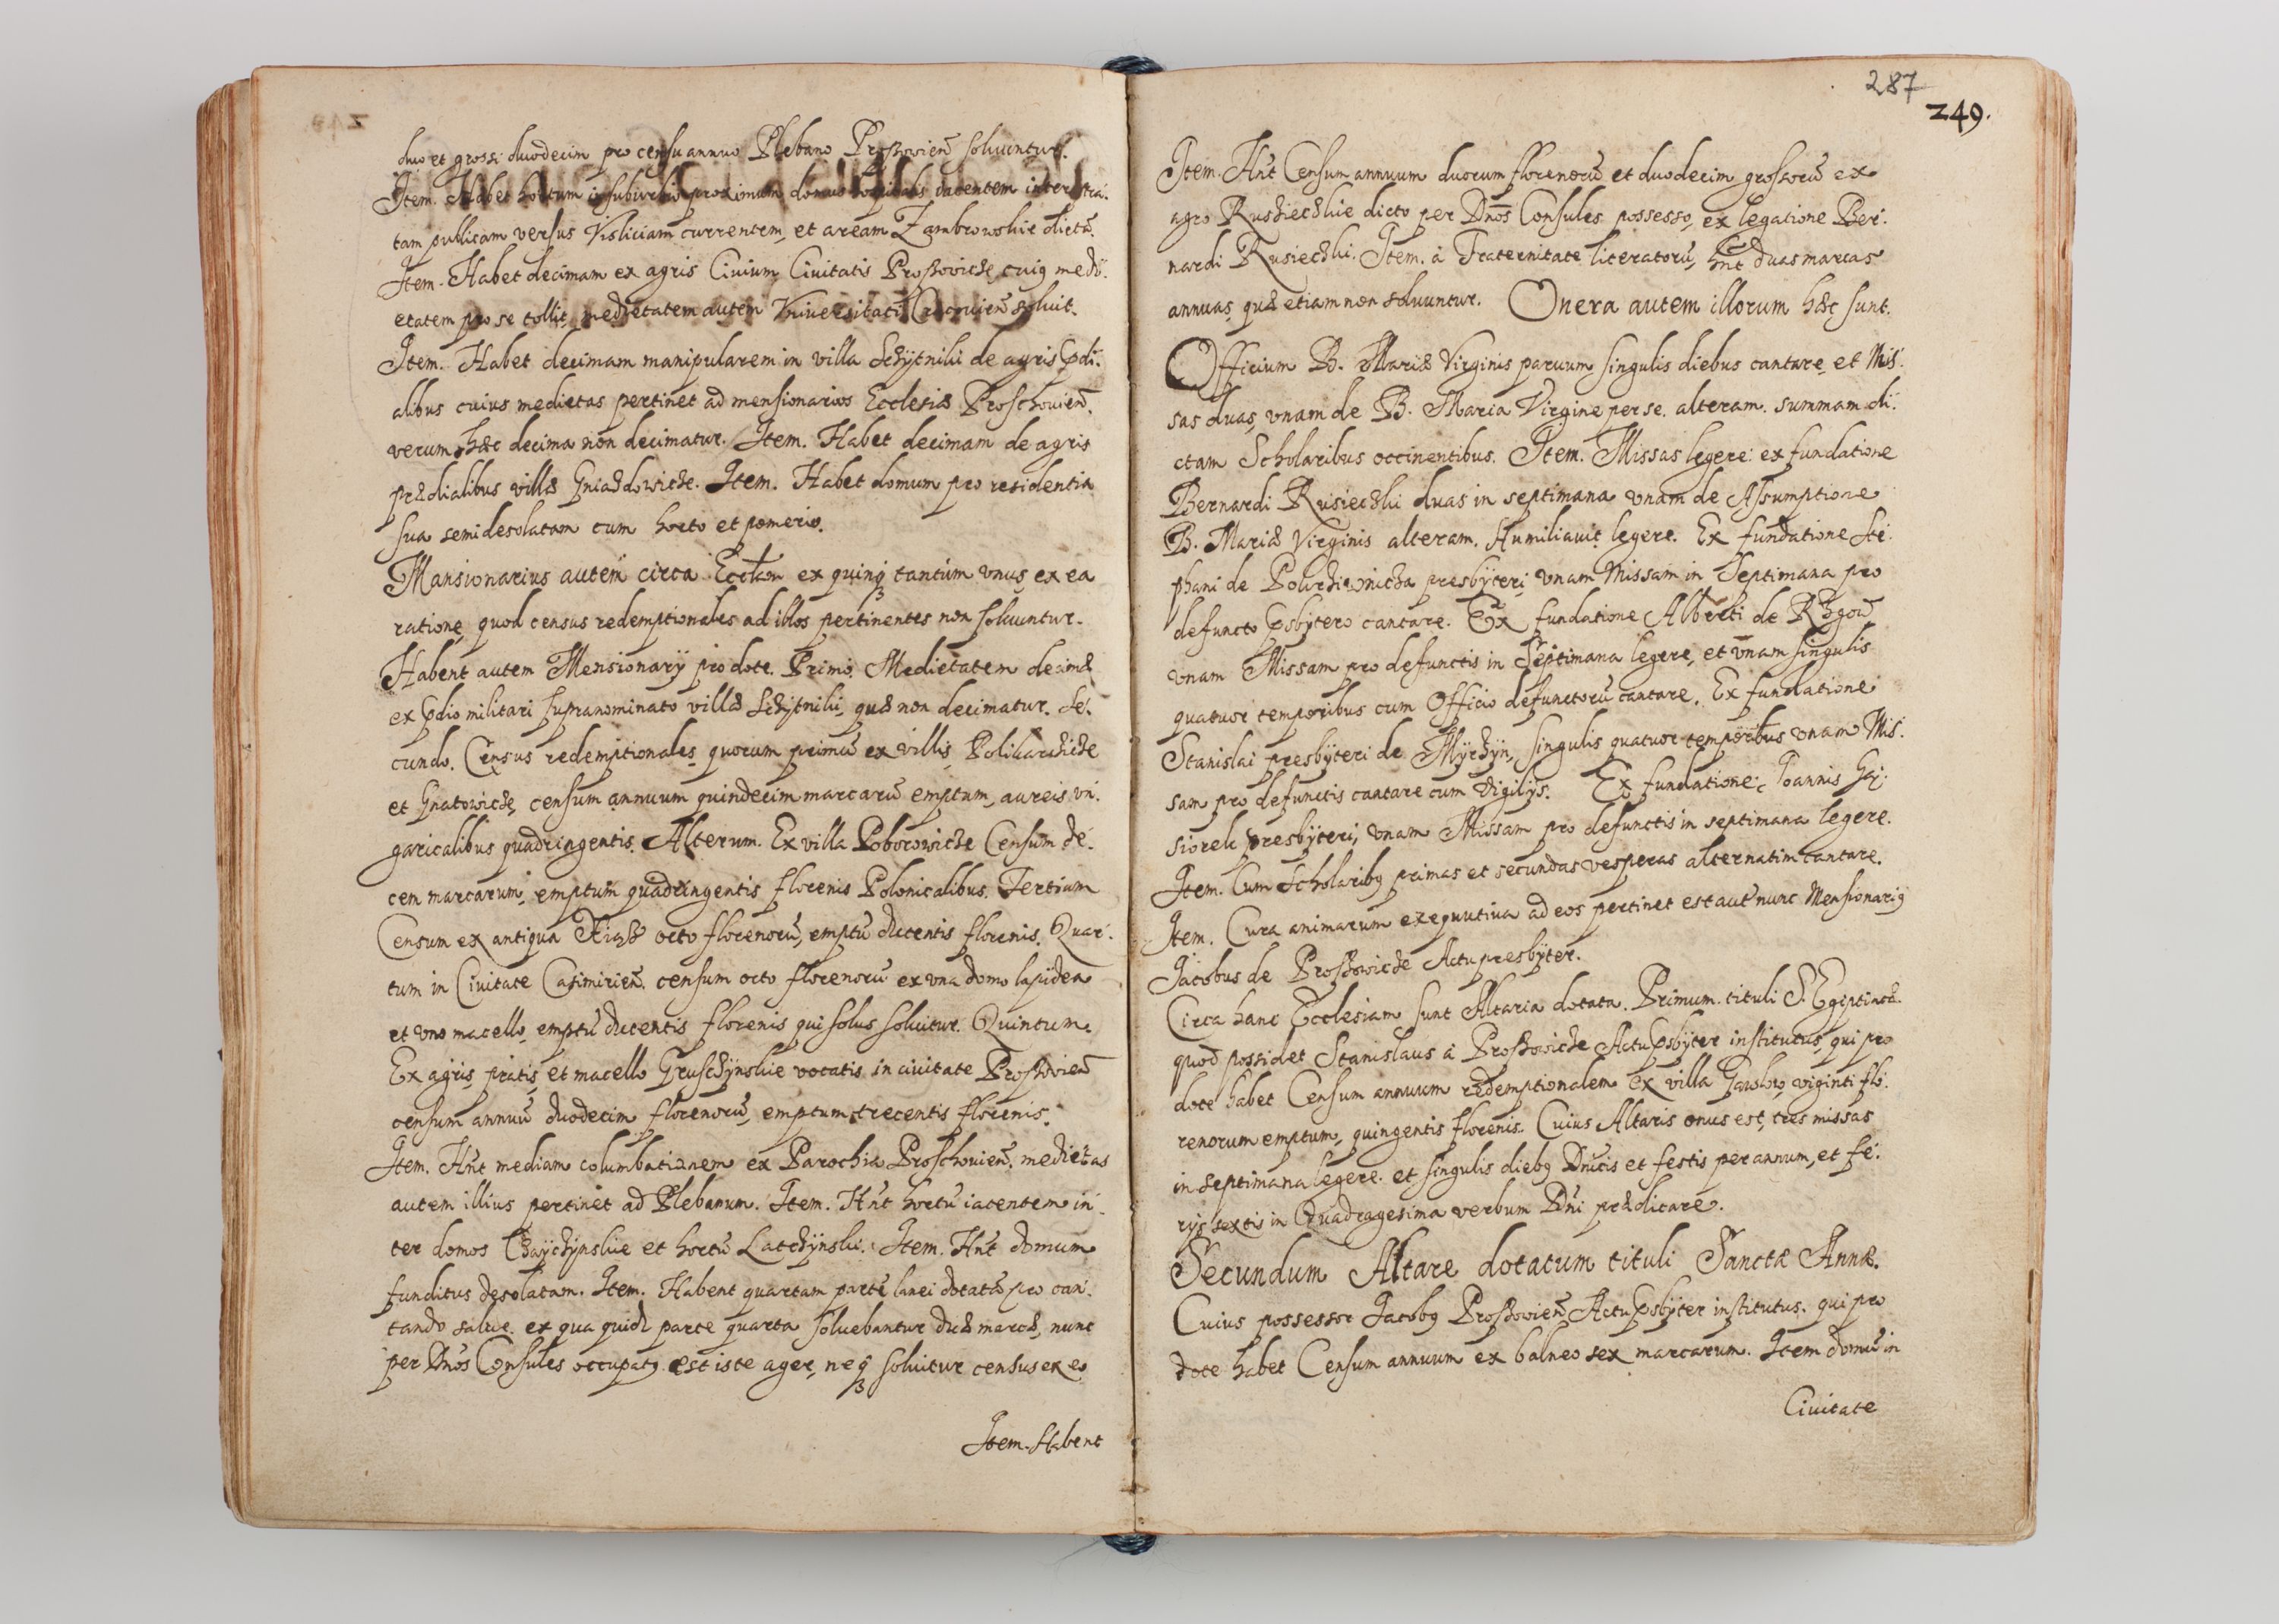 duo et grossi duodecim pro censu annuo Plebano Proszowien̄ soluuntur.
Item. Habet hortum in suburbio proximum domus hospitalis iacentem inter stra-
tam publicam versus Visliciam currentem, et aream Zambrowskie dictā.
Item. Habet decimam ex agris Ciuium Ciuitatis Proszowicze, cuiꝯ medi-
etatem pro se tollit, medietatem autem Vniuersitati Cracouien̄ soluit.
Item. Habet decimam manipularem in villa Sczÿtniki de agris p̄di-
alibus cuius medietas pertinet ad mensionarios Ecclesiæ Proschouien̄.
verum hæc decima non decimatur. Item. Habet decimam de agris
prædialibus villæ Gniazdowicze. Item. Habet domum pro residentia
sua semidesolatam cum horto et pomerio.
Mansionarius autem circa Eccl̄am ex quinqꝫ tantùm vnus, ex ea
ratione, quod census redemptionales ad illos pertinentes non soluuntur.
Habent autem Mensionarÿ pro dote. Primò. Medietatem decimæ
ex p̄dio militari supranominato villæ Sczÿtniki, quæ non decimatur. Se-
cundo. Census redemptionales, quorum primū ex villis, Polikarczicze
et Gnatowicze, censum annuum quindecim marcarū emptum, aureis vn-
garicalibus quadringentis. Alterum. Ex villa Boborowicze Censum de-
cem marcarum, emptum quadringentis florenis Polonicalibus. Tertium
Censum ex antiqua octo florenorū, emptū ducentis florenis. Quar-
tum in Ciuitate Casimirien̄. censum octo florenorū ex vna domo lapidea
et vno macello, emptū ducentis florenis qui solus soluitur. Quintum.
Ex agris, pratis, et macello Gruschÿnskie vocatis in ciuitate Proszowien̄
censum annuū duodecim florenorū, emptum trecentis florenis.
Item. Hn̄t mediam columbationem ex Parochia Proschouien̄. medietas
autem illius pertinet ad Plebanum. Item. Hn̄t hortū iacentem in-
ter domos Czaÿczÿnskie et hortū Latczÿnski. Item. Hn̄t domum
funditus desolatam. Item. Habent quartam partē lanei dotatā pro can-
tando salue. ex qua quidē parte quarta soluebantur duæ marcæ, nunc
per Dn̄os Consules occupatꝯ est iste ager, neqꝫ soluitur census ex eo
Item. Habent
287
249.
Item. Hn̄t Censum annuum duorum florenorū et duodecim grossorū ex
agro Ruszieczkie dicto per Dn̄os Consules possesso, ex legatione Ber-
nardi Rusieczki. Item. à Fraternitate literatorū, hn̄t duas marcas
annuas, quæ etiam non soluuntur. Onera autem illorum hæc sunt.
Officium B. Mariæ Virginis paruum singulis diebus cantare, et Mis-
sas duas, vnam de B. Maria Virgine per se. alteram. summam di-
ctam Scholaribus occinentibus. Item. Missas legere: ex fundatione
Bernardi Rusieczki duas in septimana vnam de Assumptione
B. Mariæ Virginis alteram. Humiliauit legere. Ex fundatione Ste-
phani de presbÿteri, vnam Missam in Septimana pro
defuncto p̄sbÿtero cantare. Ex fundatione Alberti de
vnam Missam pro defunctis in Septimana legere, et vnam singulis
quatuor temporibus cum Officio defunctorū cantare. Ex fundatione
Stanislai presbÿteri de Mÿczÿn, singulis quatuor temporibus vnam Mis-
sam pro defunctis cantare cum Vigilÿs. Ex fundatione, Joannis Gą-
siorek presbÿteri, vnam Missam pro defunctis in septimana legere.
Item. Cum Scholaribꝯ primas et secundas vesperas alternatim cantare.
Item. Cura animarum exequutiua ad eos pertinet est aut̄ nunc Mensionariꝯ
Jacobus de Proszowicze Actu presbÿter.
Circa hanc Ecclesiam sunt Altaria dotata. Primum. tituli S. Egiptiacæ.
quod possidet Stanislaus à Proszowicze Actu p̄sbÿter institutus, qui pro
dote habet Censum annuum redemptionalem ex villa viginti flo-
renorum emptum, quingentis florenis. Cuius Altaris onus est, tres missas
in septimana legere. et singulis diebꝯ Dn̄icis et festis per annum, et fe-
rÿs sextis in Quadragesima verbum Dn̄i prædicare.
Secundum Altare dotatum tituli Sanctæ Annæ.
Cuius possessor Jacobꝯ Proszowien̄ Actu p̄sbÿter institutus. qui pro
dote habet Censum annuum ex balneo sex marcarum. Item domū in
Ciuitate